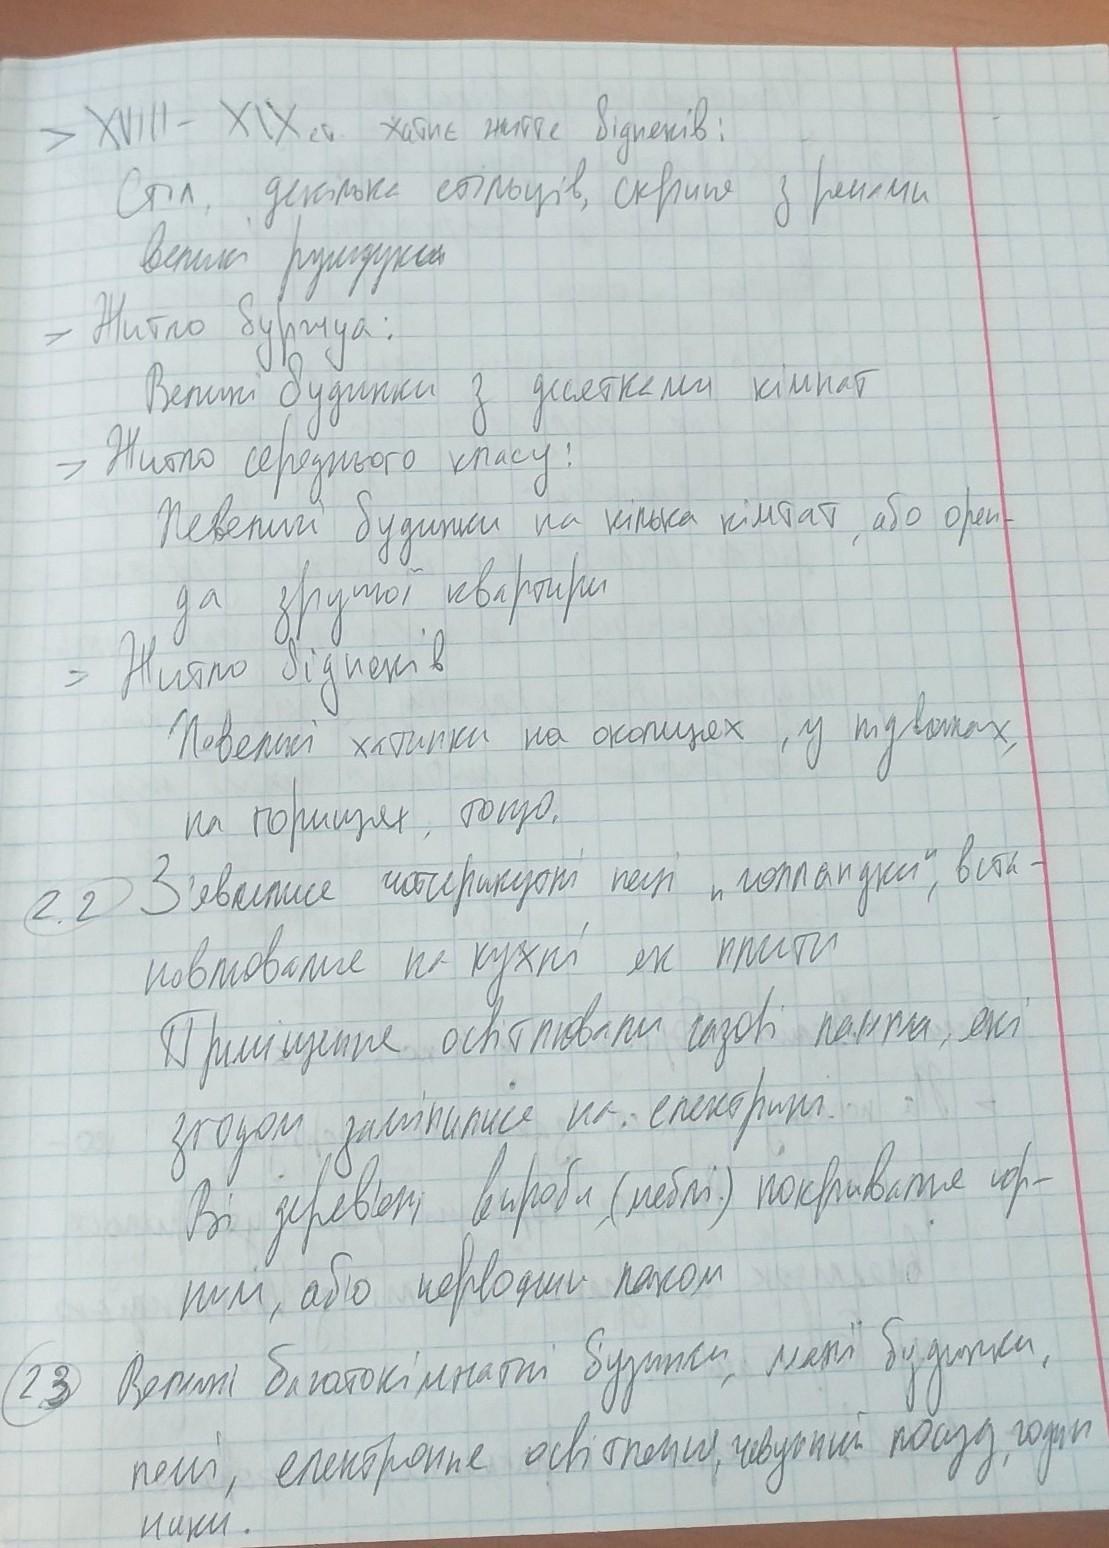 > XVIII – XIX ст. хатнє життє бідняків:
Стіл, декілька стільців, скриня з речами
великі
> Житло буржуа:
Великі будинки з десятками кімнат
> Житло середнього класу:
Невеликі будинки на кілька кімтат, або орен-
да зручної квартири
> Житло бідняків
Невеликі хатинки на околицях, у підвалах,
на горищах, тощо.
2.2 З'явилися чотирикутні печі „голландки", вста-
новлювалися на кухні як плити
Приміщення освітлювали газові лампи, які
згодом замінилися на електричні.
Всі дерев'яні вироби (меблі) покривалися чор-
ним, або червоним лаком
2.3 Великі багатокімнатні будинки, малі будинки,
печі, електронне освітлення, чавунний посуд, годин
ники.